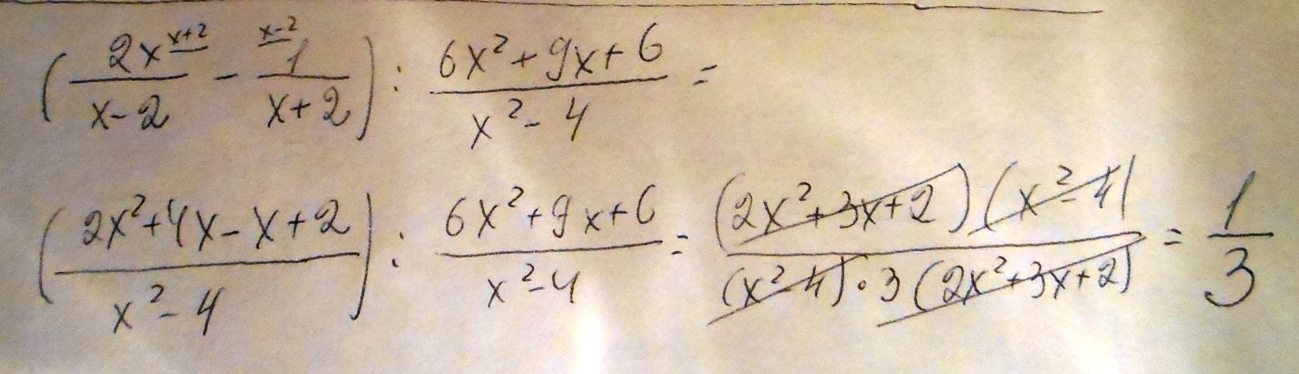 (2x^{x+2}/(x-2) - 1^{x-2}/(x+2)) : (6x²+9x+6)/(x²-4) =
((2x²+4x-x+2)/(x²-4)) : (6x²+9x+6)/(x²-4) = (2x²+3x+2)(x²-4)/((x²-4)·3(2x²+3x+2)) = 1/3